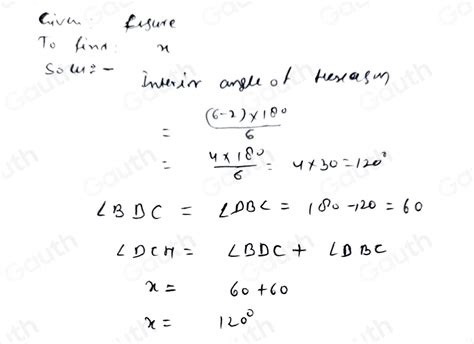 Given: figure
To find: x
Solu:-
Interior angle of Hexagon
= (6-2)×180 / 6
= 4×180 / 6 = 4×30=120°
∠BDC = ∠DBC = 180-120 = 60
∠DCH = ∠BDC + ∠DBC
x = 60+60
x = 120°